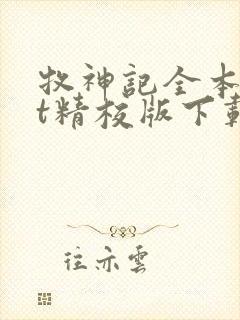 牧神記全本
t精校版下載
往亦雲